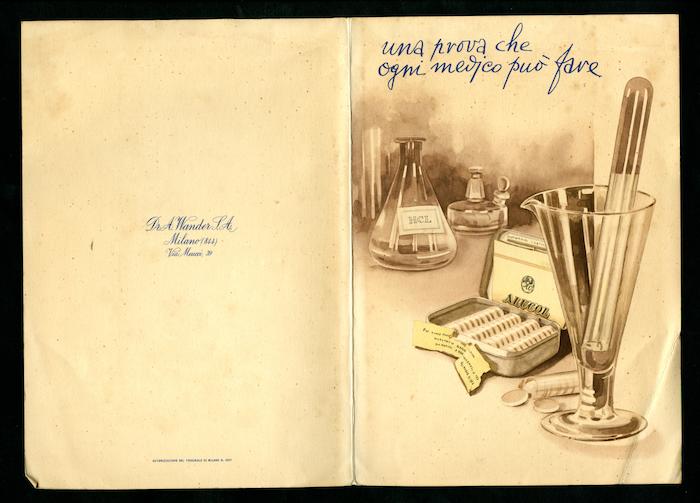 Dr. A. Wander S.A.
Milano (844)
Via Meucci, 39
AUTORIZZAZIONE DEL TRIBUNALE DI MILANO N.
una prova che
ogni medico può fare
HCL
ALUCOL